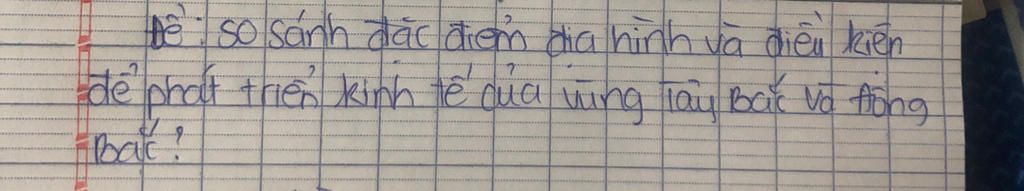 Đề: so sánh đặc điểm địa hình và điều kiện
để phát triển kinh tế của vùng Tây Bắc và Đông
Bắc?